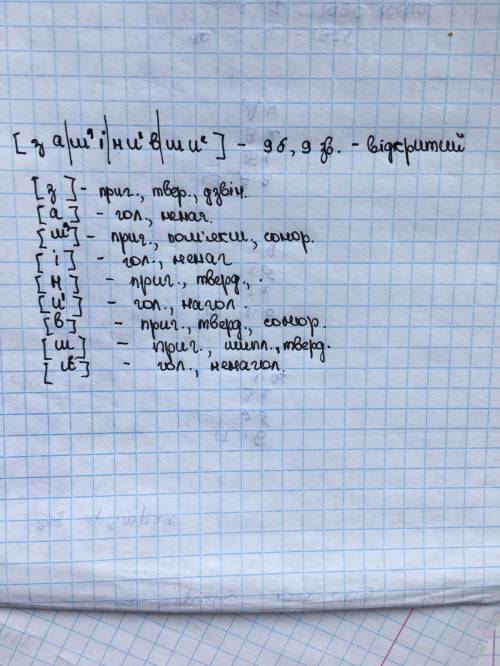 [ з а|м' і|н и́ в|ш иᵉ ] - 9б, 9 зв. - відкритий
[з] - приг., твер., дзвін.
[а] - гол., ненаг.
[м'] - приг., пом'якш., сонор.
[і] - гол., ненаг
[н] - приг., тверд., .
[и́] - гол., нагол.
[в] - приг., тверд., сонор.
[ш] - приг., шипл., тверд.
[иᵉ] - гол., ненагол.